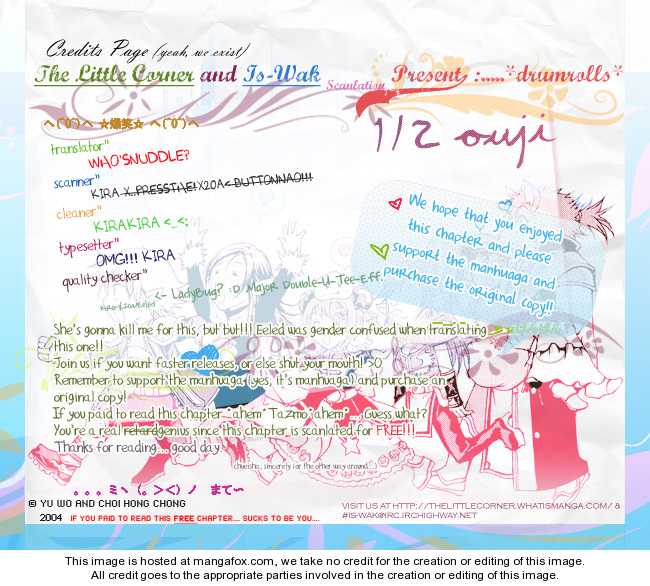 Credits Page (yeah, we exist)
The Little Corner and Is-Wak Scanlation Present, :.....*drumrolls*
ヘ(^0^)ヘ ☆爆笑☆ ヘ(^0^)ヘ
1/2 ouji
translator"
WHO'SNUDDLE?
scanner"
KIRA X..PRESSTHE! X20A< BUTTONNAO!!!
cleaner"
KIRAKIRA <_<;
typesetter"
OMG!!! KIRA
quality checker"
<- LadyBug? :D Major Double-U-Tee-Eff.
We hope that you enjoyed
this chapter and please
support the manhuaga and
purchase the original copy!!
She's gonna kill me for this, but but!!! Eeled was gender confused when translating
this one!!
Join us if you want faster releases, or else shut your mouth! >0
Remember to support the manhuaga (yes, it's manhuaga) and purchase an
original copy!
If you paid to read this chapter...ahem* Tazmo*ahem*... Guess what?
You're a real retardgenius since this chapter is scanlated for FREE!!!
Thanks for reading... good day.
(chueisha.. sincerely for the other way around...)
。。。ミヽ（。＞＜）ノ まて～
© YU WO AND CHOI HONG CHONG
2004 IF YOU PAID TO READ THIS FREE CHAPTER... SUCKS TO BE YOU...
VISIT US AT HTTP://THELITTLECORNER.WHATISMANGA.COM/ &
#IS-WAK@IRC.IRCHIGHWAY.NET
This image is hosted at mangafox.com, we take no credit for the creation or editing of this image.
All credit goes to the appropriate parties involved in the creation or editing of this image.